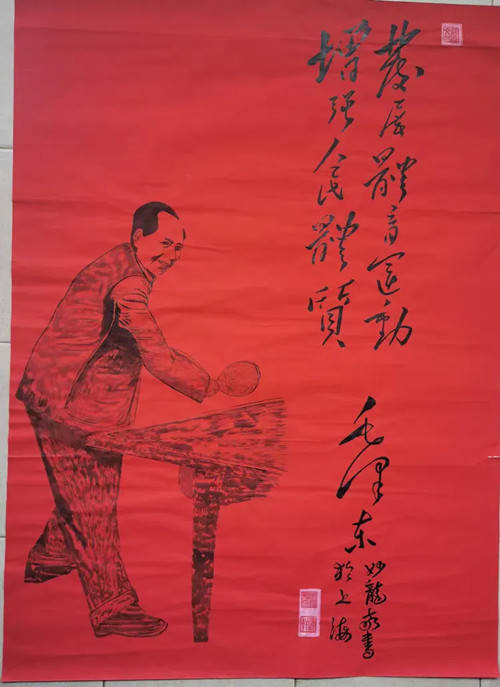 發展體育運動
增强人民體質
毛泽东
妙龍敬書
於上海